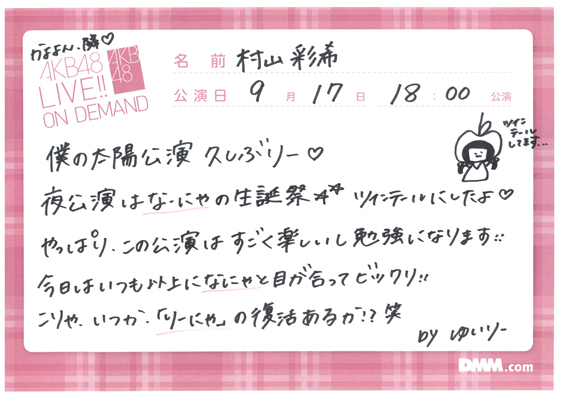 なぁょん、隣♡
AKB48
LIVE!!
ON DEMAND
AKB
48
名前 村山彩希
公演日 9月17日 18:00公演
ツイン
テール
してます…
僕の太陽公演 久しぶりー♡
夜公演はなーにゃの生誕祭☆☆ ツインテールにしたよ♡
やっぱり、この公演はすごく楽しいし勉強になります!!
今日はいつも以上になにゃと目が合ってビックリ!!
こりゃ、いつか、「りーにゃ」の復活あるか!? 笑
by ゆいりー
DMM.com